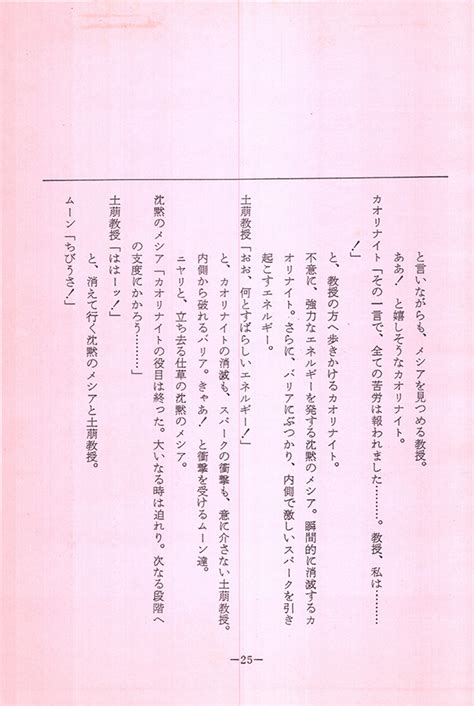 と言いながらも、メシアを見つめる教授。
ああ！　と嬉しそうなカオリナイト。
カオリナイト「その一言で、全ての苦労は報われました………。教授、私は……
！」
と、教授の方へ歩きかけるカオリナイト。
不意に、強力なエネルギーを発する沈黙のメシア。瞬間的に消滅するカ
オリナイト。さらに、バリアにぶつかり、内側で激しいスパークを引き
起こすエネルギー。
土萠教授「おお、何とすばらしいエネルギー！」
と、カオリナイトの消滅も、スパークの衝撃も、意に介さない土萠教授。
内側から破れるバリア。きゃあ！　と衝撃を受けるムーン達。
ニヤリと、立ち去る仕草の沈黙のメシア。
沈黙のメシア「カオリナイトの役目は終った。大いなる時は迫れり。次なる段階へ
の支度にかかろう………」
土萠教授「ははーッ！」
と、消えて行く沈黙のメシアと土萠教授。
ムーン「ちびうさ！」
—25—